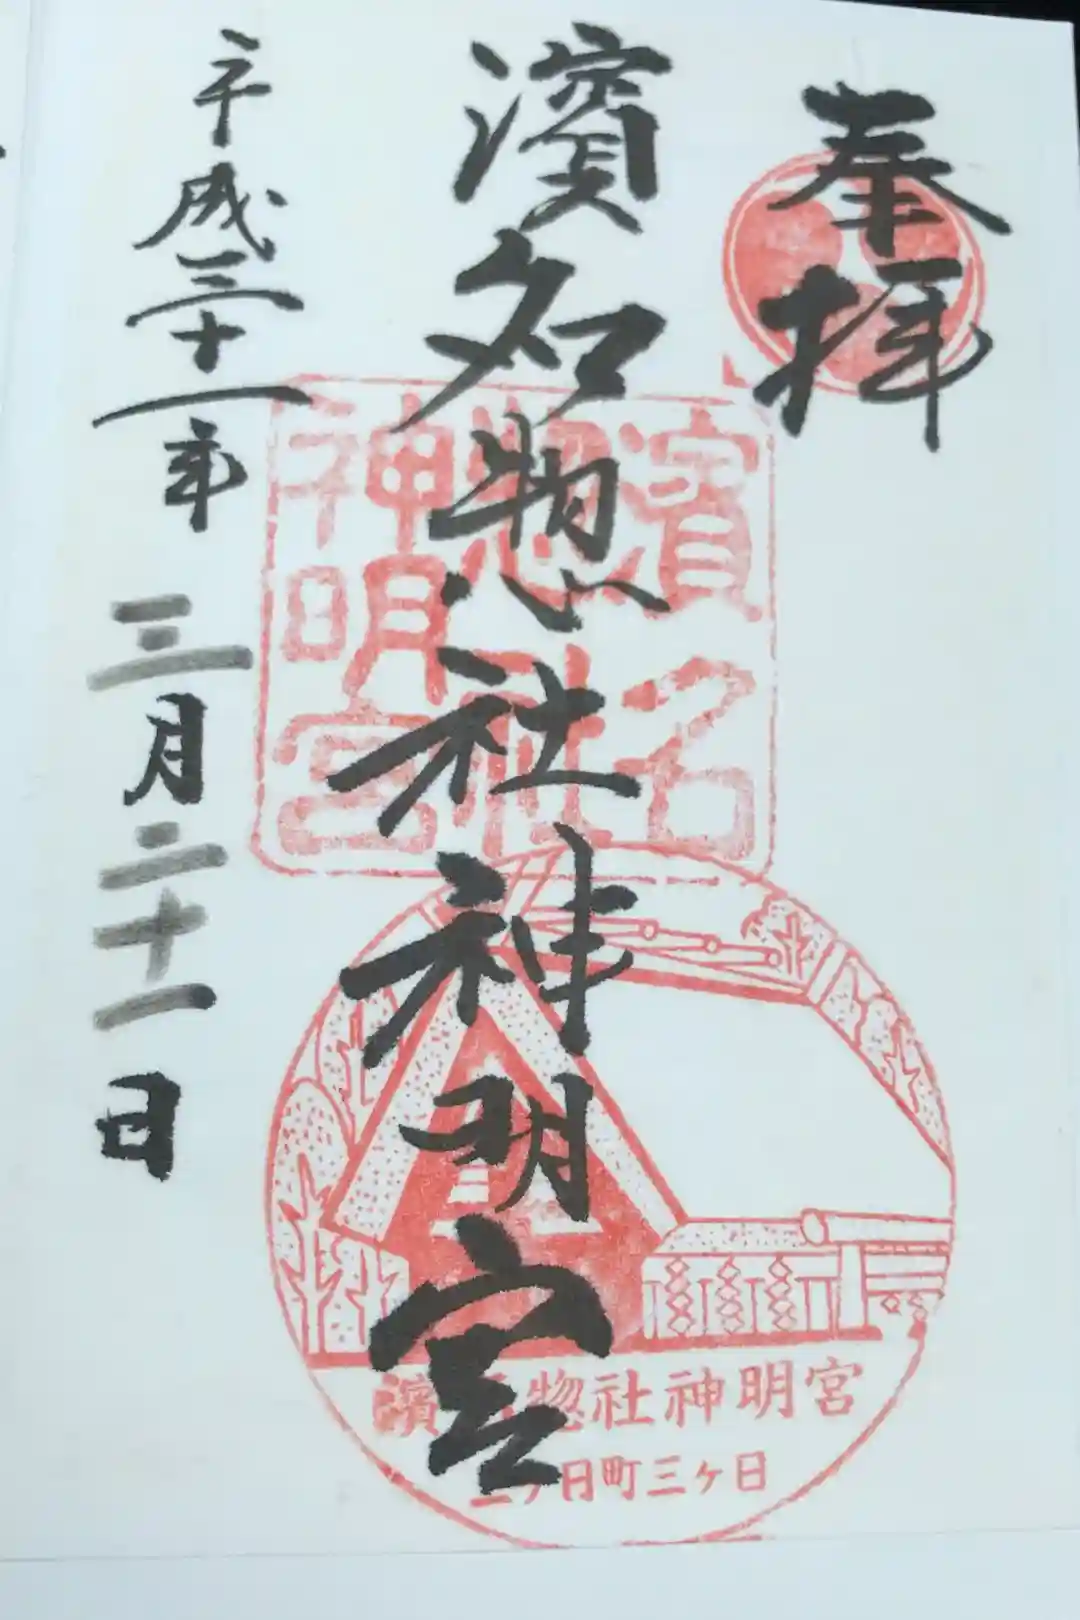 奉拝
濱名惣社神明宮
平成三十一年三月二十一日
濱名
惣社
神明宮
濱名惣社神明宮
三ヶ日町三ヶ日